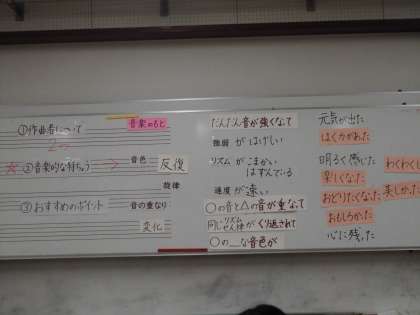 ①作曲者について
②音楽的な特ちょう
③おすすめのポイント
音楽のもと
音色
反復
旋律
音の重なり
変化
だんだん音が強くなって
強弱 が はげしい
リズム が こまかい
はずんでいる
速度 が 速い
〇の音と△の音が重なって
同じリズム
せん律 がくり返されて
〇の__な音色が
元気が出た
はくカがあった
明るく感じた
わくわくし
楽しくなった
おどりたくなった
美しかった
おもしろかった
心に残った